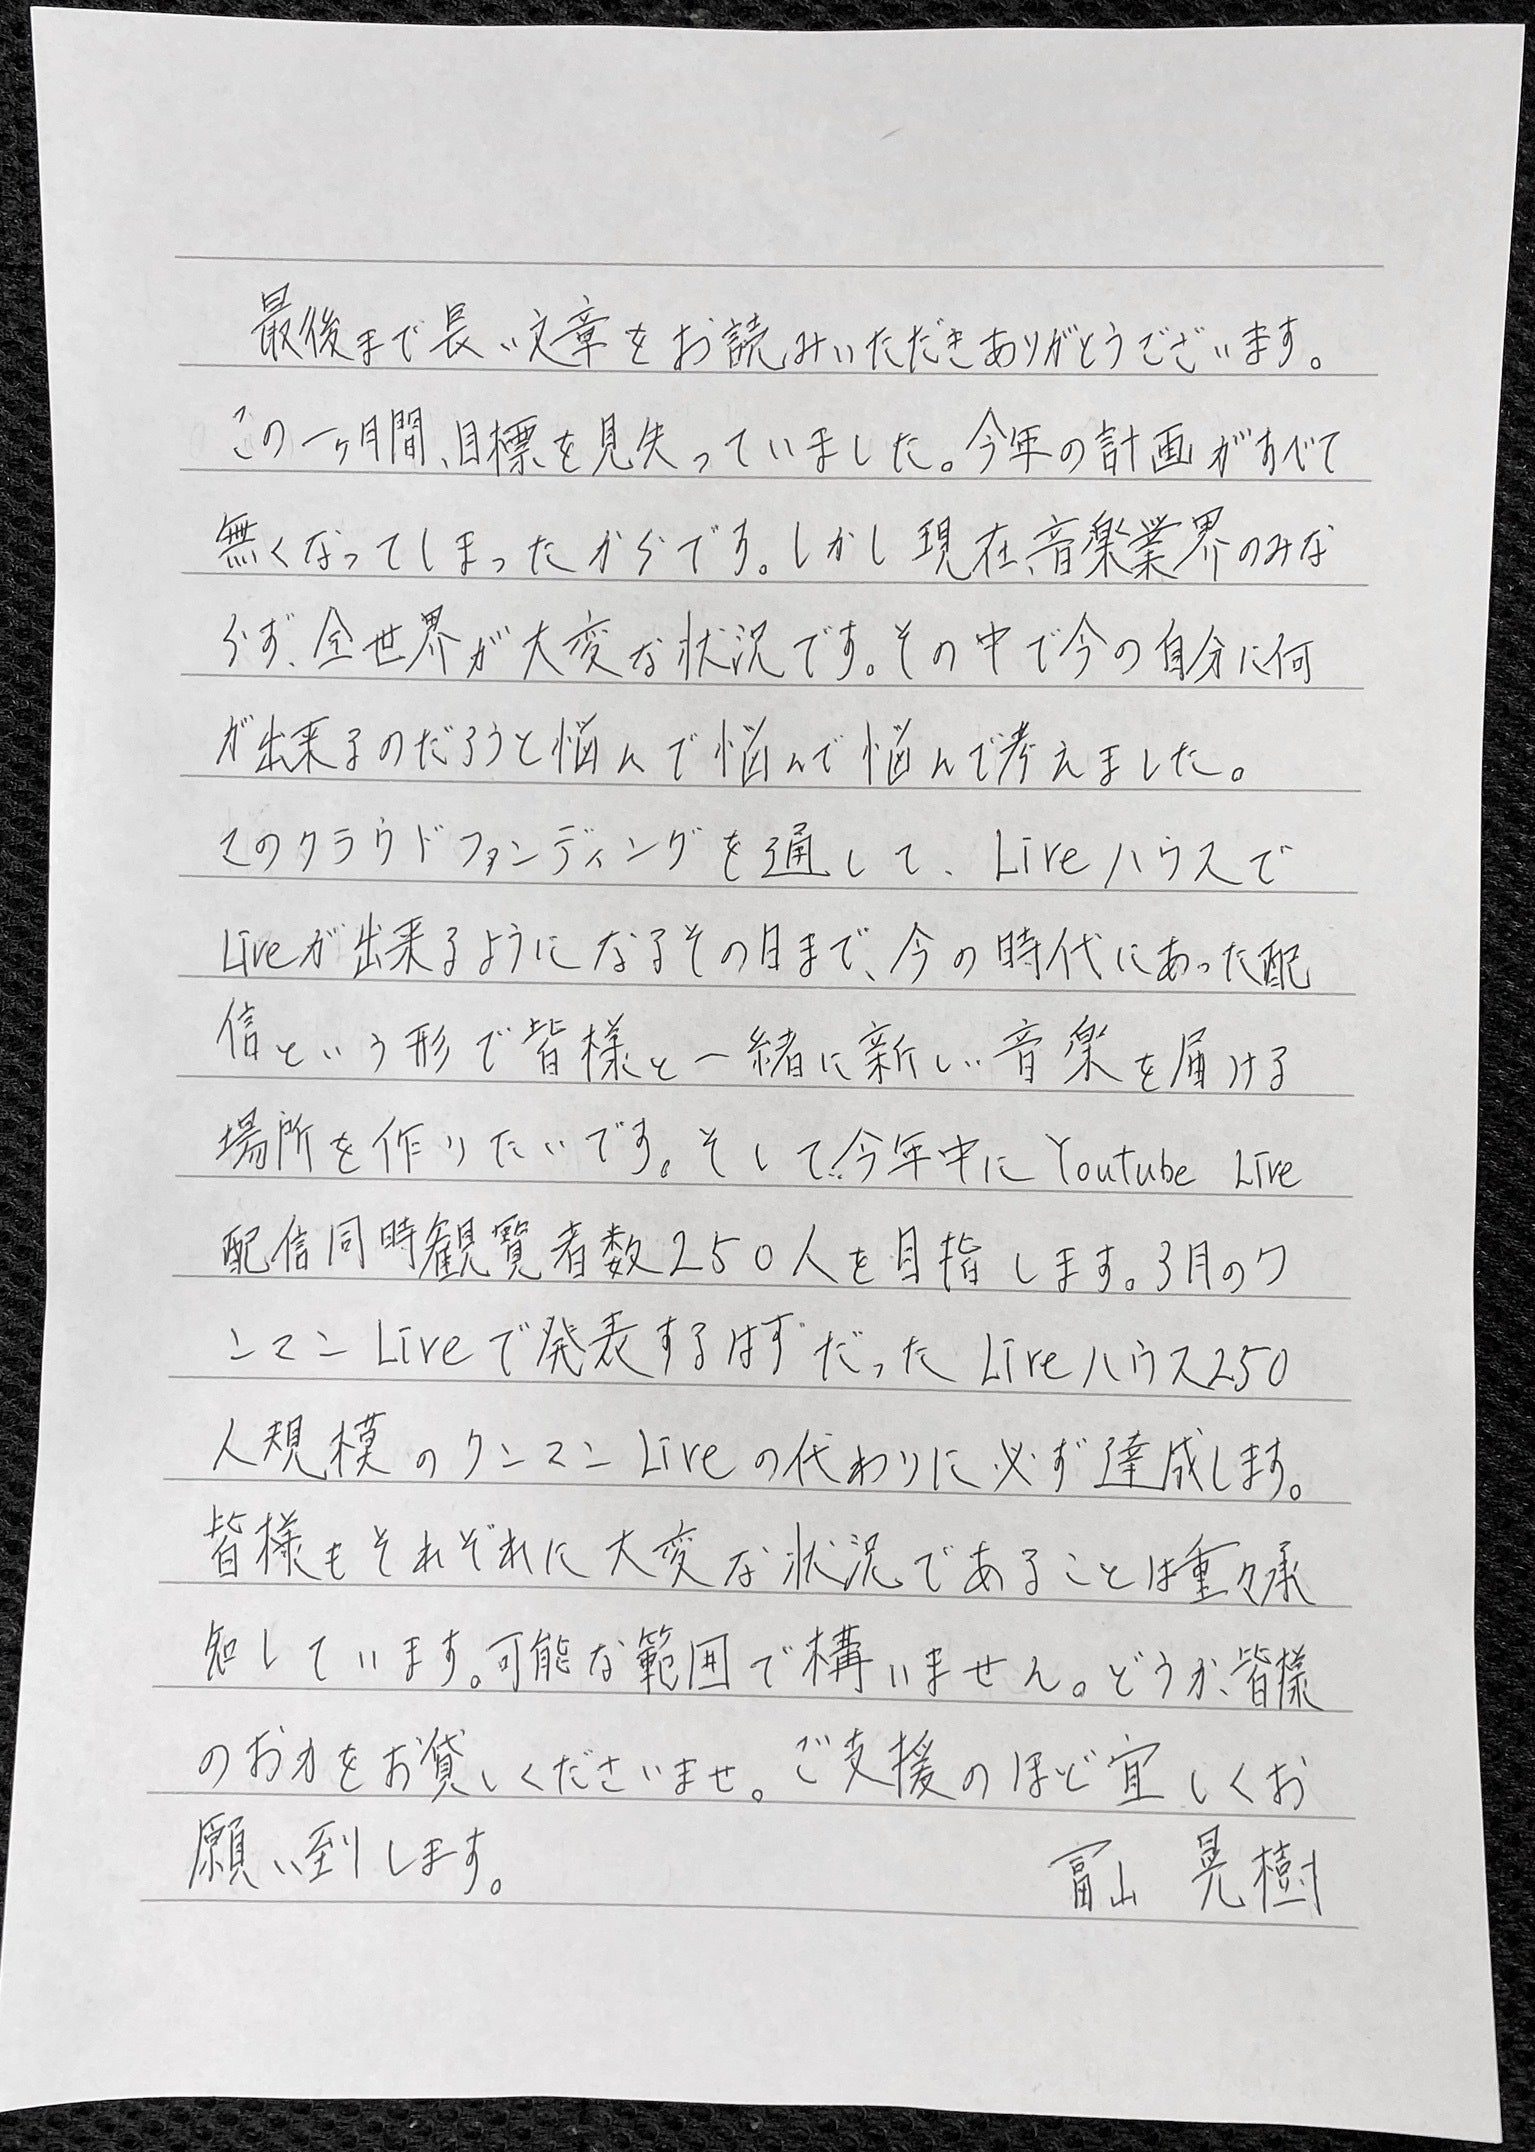 最後まで長い文章をお読みいただきありがとうございます。
この一ヶ月間、目標を見失っていました。今年の計画がすべて
無くなってしまったからです。しかし現在、音楽業界のみな
らず、全世界が大変な状況です。その中で今の自分に何
が出来るのだろうと悩んで悩んで悩んで考えました。
このクラウドファンディングを通して、Liveハウスで
Liveが出来るようになるその日まで、今の時代にあった配
信という形で皆様と一緒に新しい音楽を届ける
場所を作りたいです。そして、今年中にYoutube Live
配信同時観覧者数250人を目指します。3月のワ
ンマンLiveで発表するはずだったLiveハウス250
人規模のワンマンLiveの代わりに必ず達成します。
皆様もそれぞれに大変な状況であることは重々承
知しています。可能な範囲で構いません。どうか、皆様
のお力をお貸しくださいませ。ご支援のほど宜しくお
願い到します。
冨山 晃樹